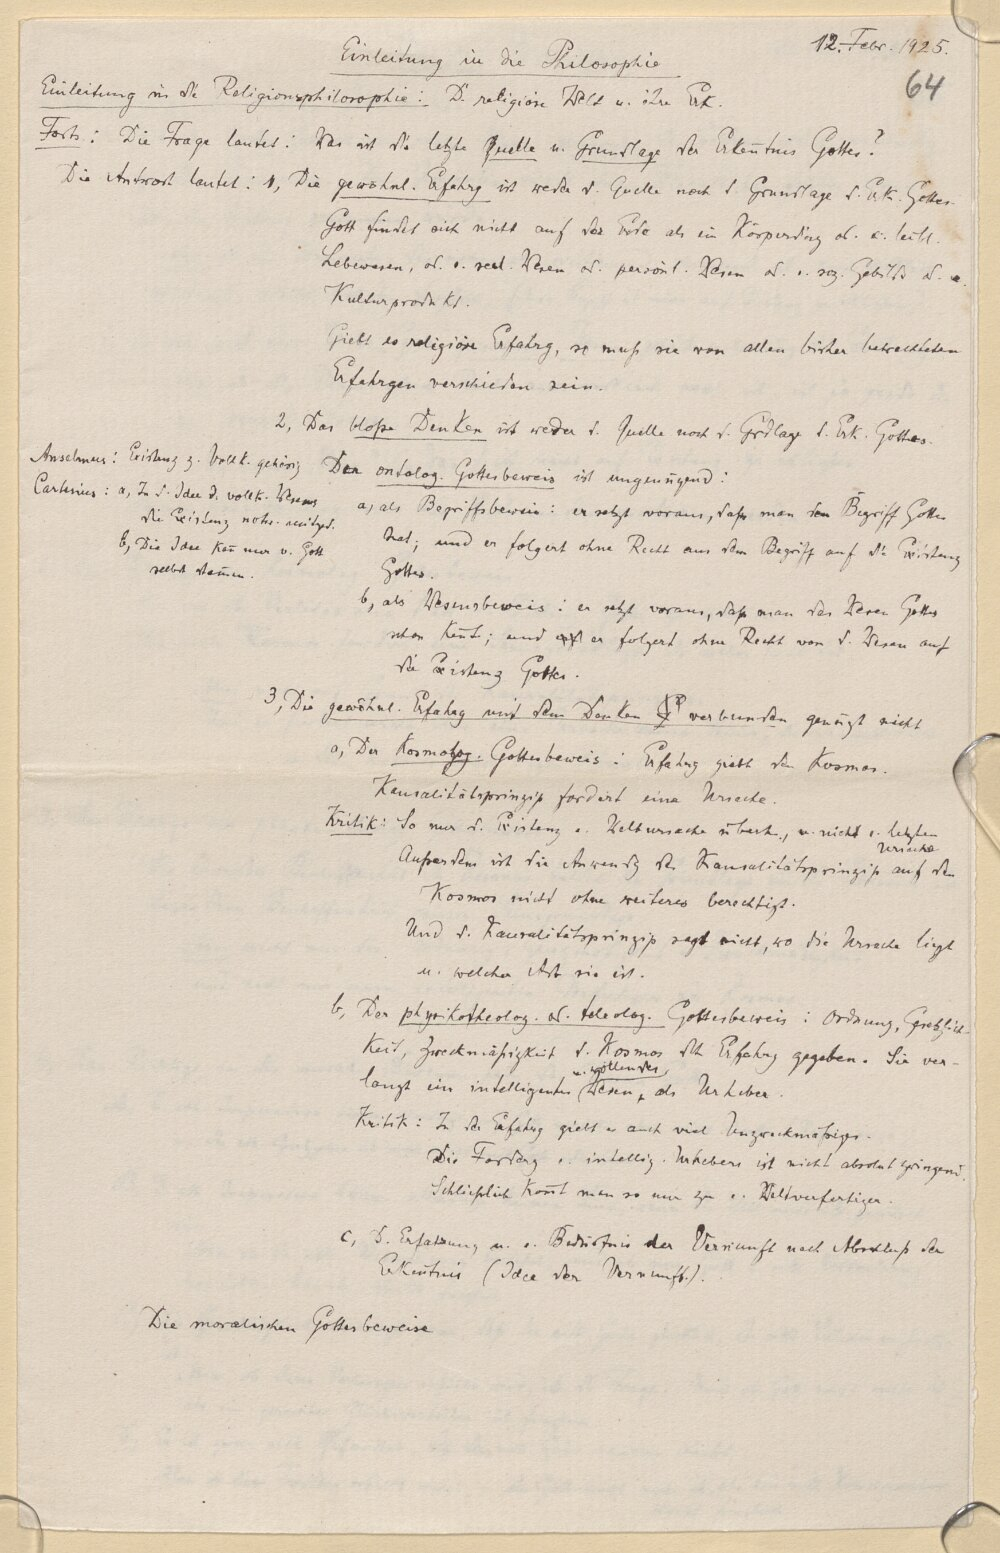 12. Febr. 1925.
Einleitung in die Philosophie
64
Einleitung in die Religionsphilosophie: D. religiöse Welt u. ihre Erk.
Forts.: Die Frage lautet: Was ist die letzte Quelle u. Grundlage der Erkenntnis Gottes?
Die Antwort lautet: 1, Die gewöhnl. Erfahrg ist weder d. Quelle noch d. Grundlage d. Erk. Gottes.
Gott findet sich nicht auf der Erde als ein Körperding od. e. leibl.
Lebewesen, od. e. seel. Wesen od. persönl. Wesen od. e. soz. Gebilde od. e.
Kulturprodukt.
Giebt es religiöse Erfahrg, so muß sie von allen bisher betrachteten
Erfahrgen verschieden sein.
2, Das bloße Denken ist weder d. Quelle noch d. Grdlage d. Erk. Gottes.
Anselmus: Existenz z. Vollk. gehörig
Cartesius: a, In d. Idee d. vollk. Wesens
die Existenz notw. mitged.
b, Die Idee kann nur v. Gott
selbst stammen.
Der ontolog. Gottesbeweis ist ungenügend:
a, als Begriffsbeweis: er setzt voraus, daß man den Begriff Gottes
hat; und er folgert ohne Recht aus dem Begriff auf die Existenz
Gottes.
b, als Wesensbeweis: er setzt voraus, daß man das Wesen Gottes
schon kennt; und er folgert ohne Recht von d. Wesen auf
die Existenz Gottes.
3, Die gewöhnl. Erfahrg mit dem Denken verbunden genügt nicht
a, Der Kosmolog. Gottesbeweis: Erfahrg giebt den Kosmos.
Kausalitätsprinzip fordert eine Ursache.
Kritik: So nur d. Existenz e. Weltursache überh., u. nicht e. letzten
Ursache
Außerdem ist die Anwendg des Kausalitätsprinzips auf den
Kosmos nicht ohne weiteres berechtigt.
Und d. Kausalitätsprinzip sagt nicht, wo die Ursache liegt
u. welcher Art sie ist.
b, Der physikotheolog. od. teleolog. Gottesbeweis: Ordnung, Gesetzlich-
keit, Zweckmäßigkeit d. Kosmos dch Erfahrg gegeben. Sie ver-
u. wollendes
langt ein intelligentes Wesen als Urheber.
Kritik: In der Erfahrg giebt es auch viel Unzweckmäßiges.
Die Forderg e. intellig. Urhebers ist nicht absolut zwingend.
Schließlich kommt man so nur zu e. Weltverfertiger.
c, D. Erfassung u. e. Bedürfnis der Vernunft nach Abschluß der
Erkenntnis (Idee der Vernunft).
Die moralischen Gottesbeweise